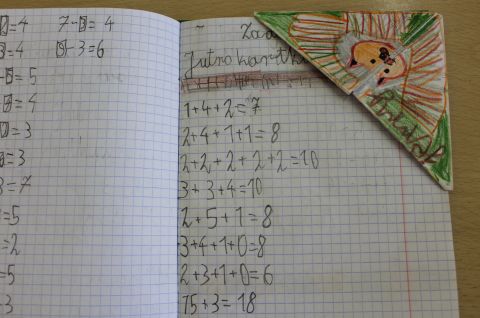 =4 7-3=4
=4 9-3=6
=5
=4
=3
=3
=7
=5
=2
=5
3
Zad
1+4+2=7
2+4+1+1=8
2+2+2+2+2=10
3+3+4=10
2+5+1=8
3+4+1+0=8
2+3+1+0=6
15+3=18